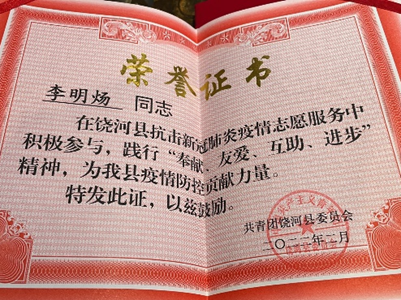 荣誉证书
李明炀 同志
在饶河县抗击新冠肺炎疫情志愿服务中
积极参与，践行“奉献、友爱、互助、进步”
精神，为我县疫情防控贡献力量。
特发此证，以兹鼓励。
共青团饶河县委员会
二〇二二年二月